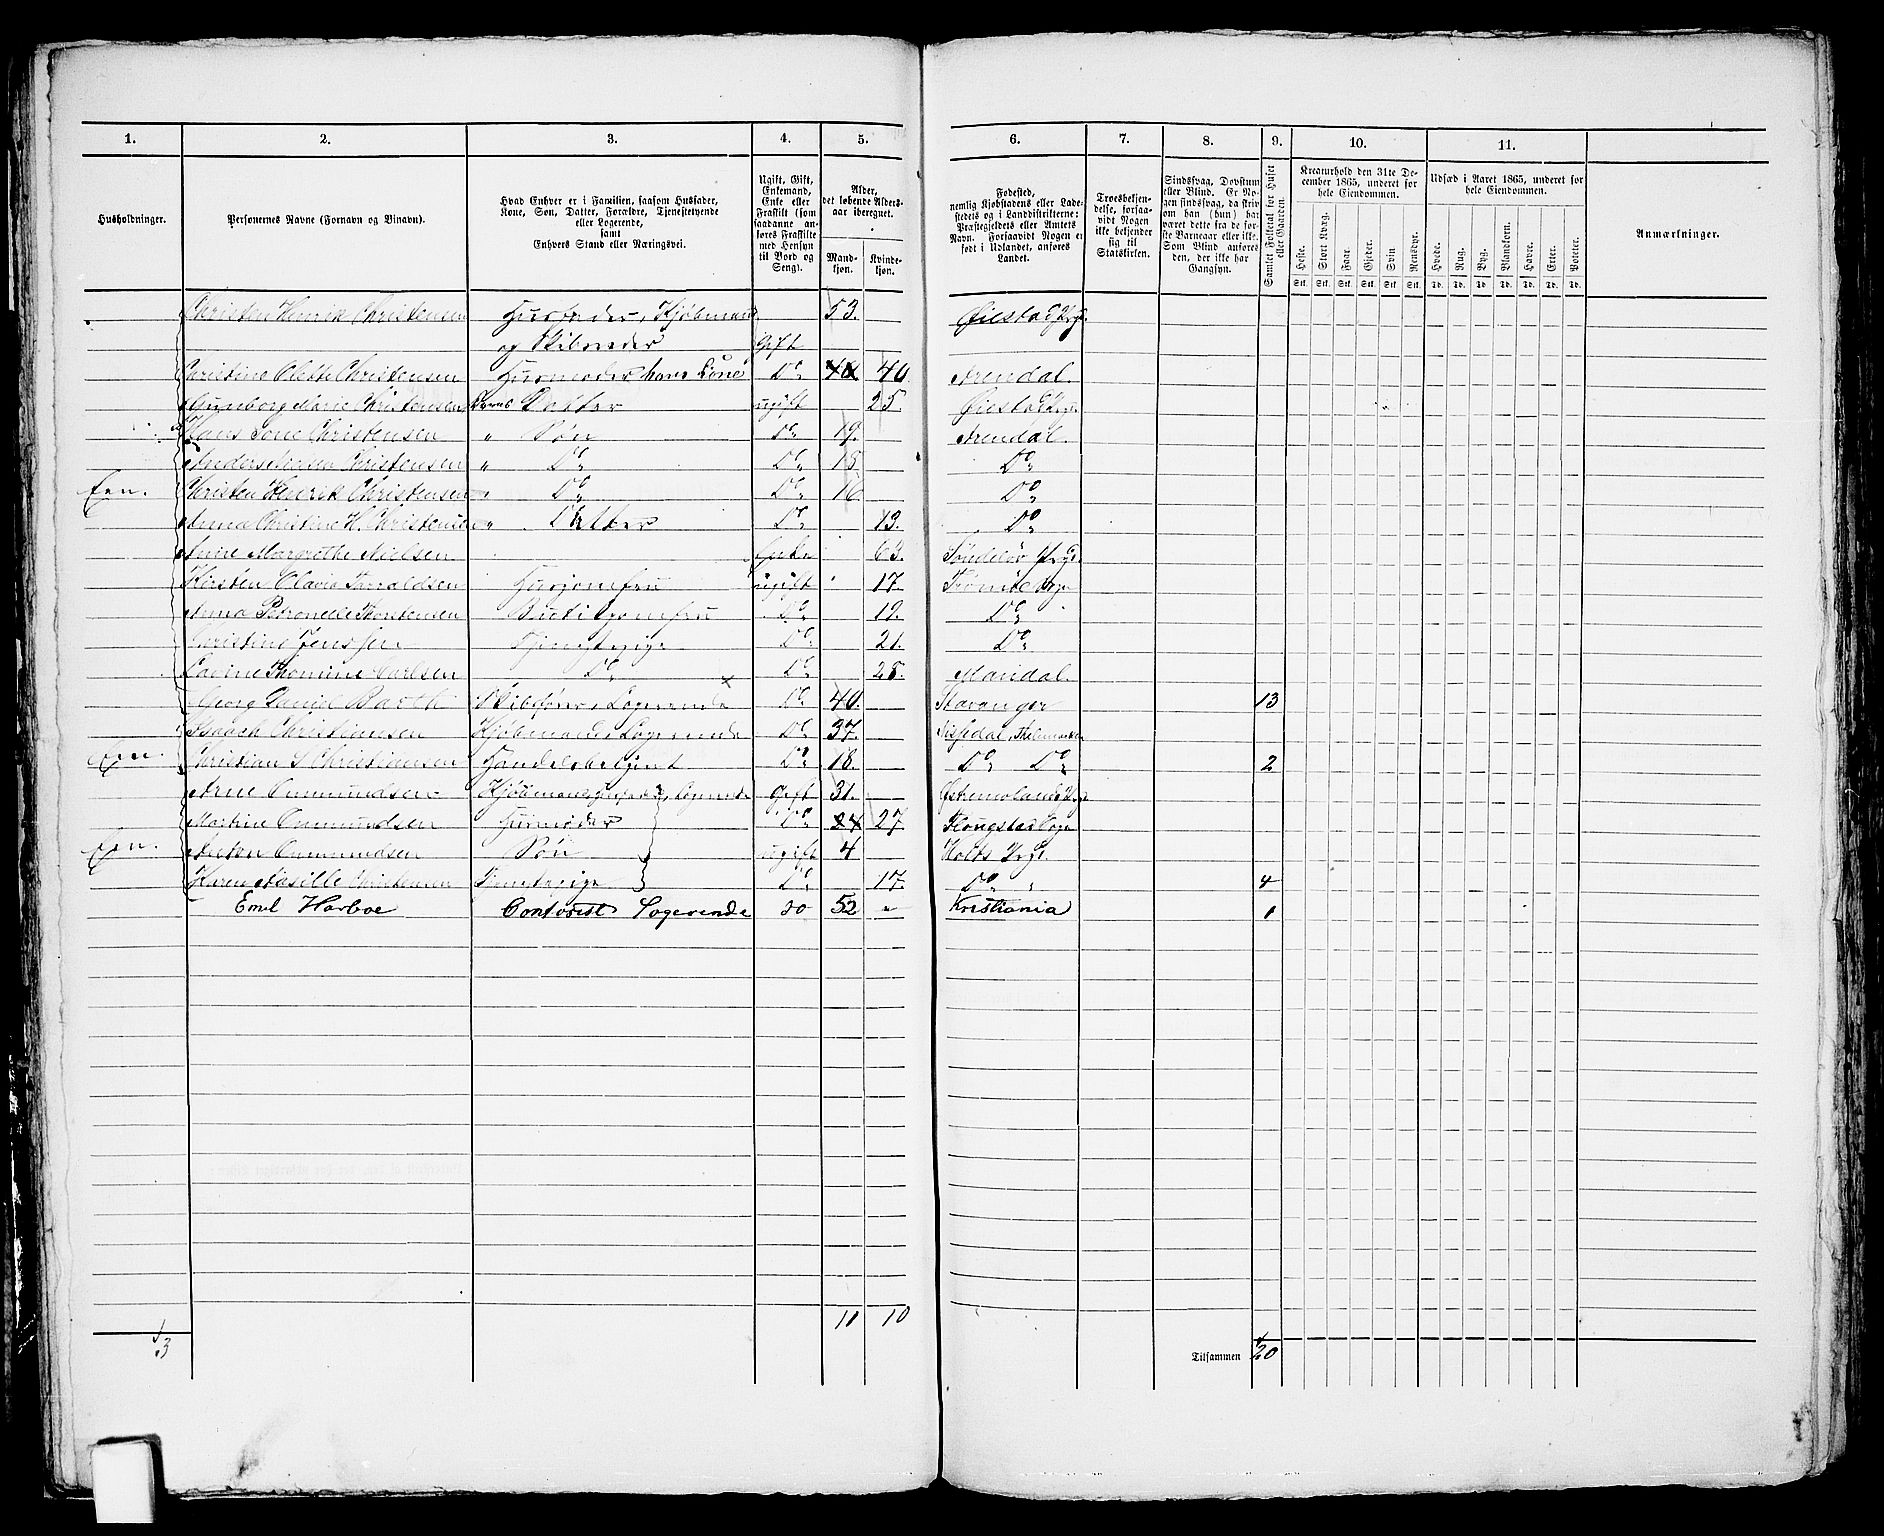 1. 2. 3. 4. 5. 6. 7. 8. 9. 10. 11.
Husholdninger.
Personernes Navne (Fornavn og Binavn).
Hvad Enhver er i Familien, saasom Husfader,
Kone, Søn, Datter, Forældre, Tjenestetyende
eller Logerende,
samt
Enhvers Stand eller Næringsvei.
Ugift, Gift,
Enkemand,
Enke eller
Fraskilt (som
saadanne an-
føres Fraskilte
med Hensyn
til Bord og
Seng).
Alder,
det løbende Alders-
aar iberegnet.
Mand-
kjøn.
Kvinde-
kjøn.
Fødested,
nemlig Kjøbstadens eller Lade-
stedets og i Landdistrikterne:
Præstegjeldets eller Amtets
Navn. Forsaavidt Nogen er
født i Udlandet, anføres
Landet.
Troesbekjen-
delse, forsaa-
vidt Nogen
ikke bekjender
sig til
Statskirken.
Sindssvag, Døvstum
eller Blind. Er No-
gen sindssvag, da skriv
om han (hun) har
været dette fra de før-
ste Barneaar eller ikke.
Som Blind anføres
den, der ikke har
Gangsyn.
Samlet Folketal for Huset
eller Gaarden.
Kreaturhold den 31te De-
cember 1865, underet for
hele Eiendommen.
Heste. Stort Kvæg. Faar. Gjeder. Svin Rensdyr.
Stk. Stk. Stk. Stk. Stk. Stk.
Udsæd i Aaret 1865, underet for
hele Eiendommen.
Hvede. Rug. Byg. Blandkorn. Havre. Erter. Poteter.
Td. Td. Td. Td. Td. Td. Td.
Anmærkninger.
Christen Henrik Christensen Husfader, Kjøbmand 53. Øiestad Prgj.
og Skibsreder Gift
Christine Olette Christensen Husmoder, hans Kone Do 40 40 Arendal.
Gunborg Marie Christensen Deres Datter ugift 25. Øiestad Prgj.
Hans Tone Christensen " Søn Do 19. Arendal.
Anders Christensen " Do Do 18. Do
Een. Christen Henrik Christensen " Do Do 16 Do
Anna Christine H. Christensen " Datter Do 13. Do
Anne Margrethe Nielsen Enke 63. Søndeløv Prgj.
Kirsten Olava Tarraldsen Husjomfru ugift 17. Tromø Prgj.
Anna Petronelle Thorstensen Butiksjomfru Do 19. Do
Christine Jenssen Tjenstepige Do 21. Do
Lavine Thomine Carlsen Do Do 28. Mandal.
Georg Daniel Barth Skibsfører, Logerende Do 40. Stavanger 13
Isaach Christiansen Kjøbmand, Logerende Do 37. Nissedal, Thelemarken
Een. Christian S Christiansen Handelsbetjent Do 18. Do Do 2
Arne Ommundsen Kjøbmand, Husfader, Logerende Gift 31.
Martine Ommundsen Husmoder Do 24 27
Een. Anton Ommundsen Søn ugift 4 Holts Prgj.
Karen Christensen Tjenstepige Do 17. Do " 4
Emil Harboe Contorist Logerende do 52 " Kristiania 1
10 10
3
Tilsammen 20